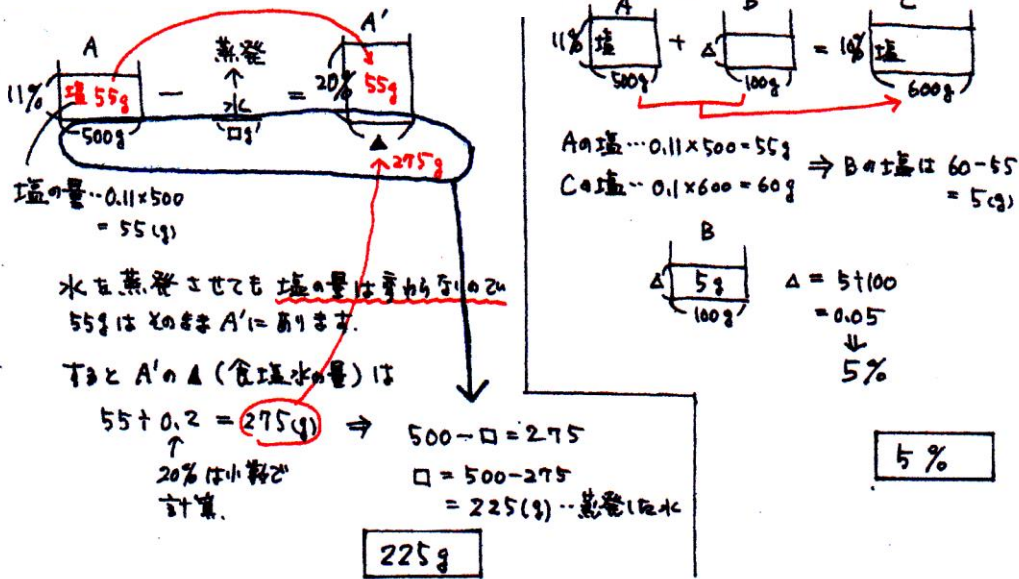 A
A′
蒸発
↑
水
□g
11%
塩 55g
−
=
20%
55g
500g
▲
275g
塩の量‥0.11×500
= 55(g)
水を蒸発させても塩の量は変わらないので
55gはそのままA′にあります.
するとA′の▲(食塩水の量)は
55÷0.2 = 275(g) ⇒
↑
20%は小数で
計算.
500−□=275
□=500−275
=225(g)‥蒸発した水
225g
A
B
C
11%
塩
+
△
= 10%
塩
500g
100g
600g
Aの塩…0.11×500=55g
Cの塩‥0.1×600=60g
⇒ Bの塩は 60−55
= 5(g)
B
△
5g
100g
△ = 5÷100
=0.05
⇓
5%
5%